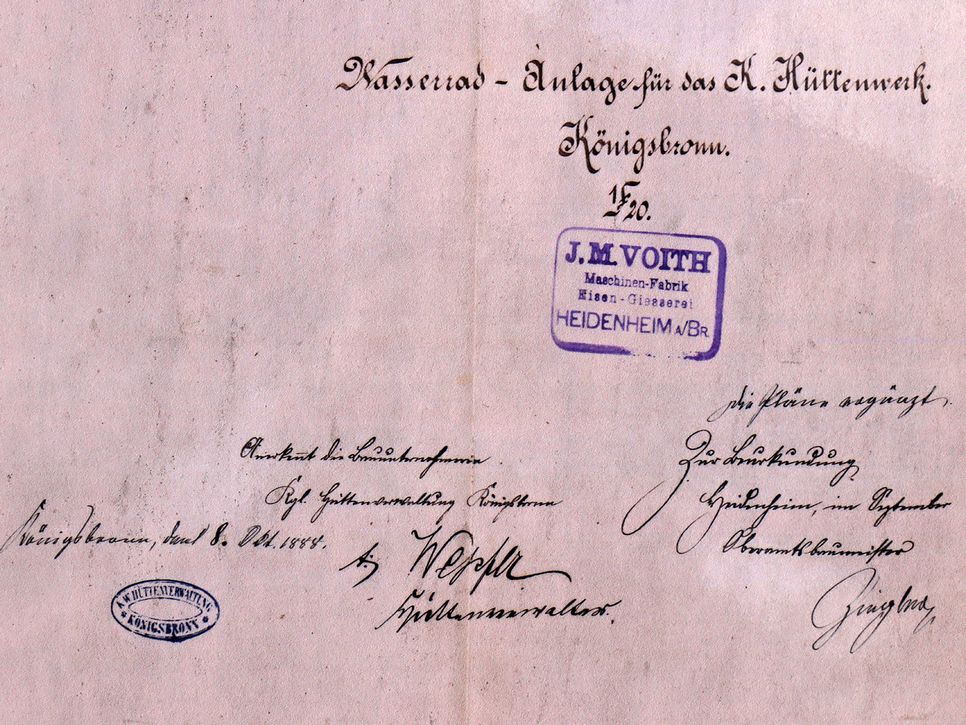 Wasserrad - Anlage für das K. Hüttenwerk.
Königsbronn.
1/20.
J. M. VOITH
Maschinen-Fabrik
Eisen-Giesserei
HEIDENHEIM A/BR.
Die Pläne ergänzt.
Zur Beurkundung
Heidenheim, im September
Oberamtsbaumeister
Anerkent die Bauunternehmerin
Kgl. Hüttenverwaltung Königsbronn
Königsbronn, den 8. Okt. 1888.
Hüttenverwalter.
K. W. HÜTTENVERWALTUNG
KÖNIGSBRONN